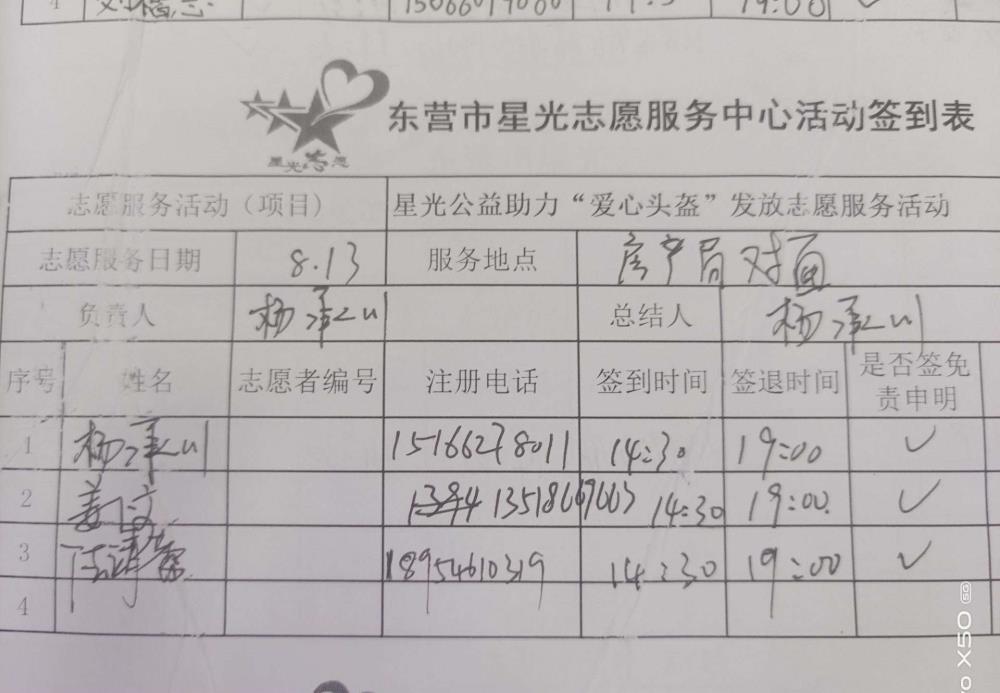 4 15066019060 19:00
星光志愿
东营市星光志愿服务中心活动签到表
志愿服务活动（项目） 星光公益助力“爱心头盔”发放志愿服务活动
志愿服务日期 8.13 服务地点 房产局对面
负责人 杨 总结人 杨
序号 姓名 志愿者编号 注册电话 签到时间 签退时间 是否签免
责申明
1 杨 15166278011 14:30 19:00 ✓
2 姜 14:30 19:00 ✓
3 18954610319 14:30 19:00 ✓
4
X50 5G